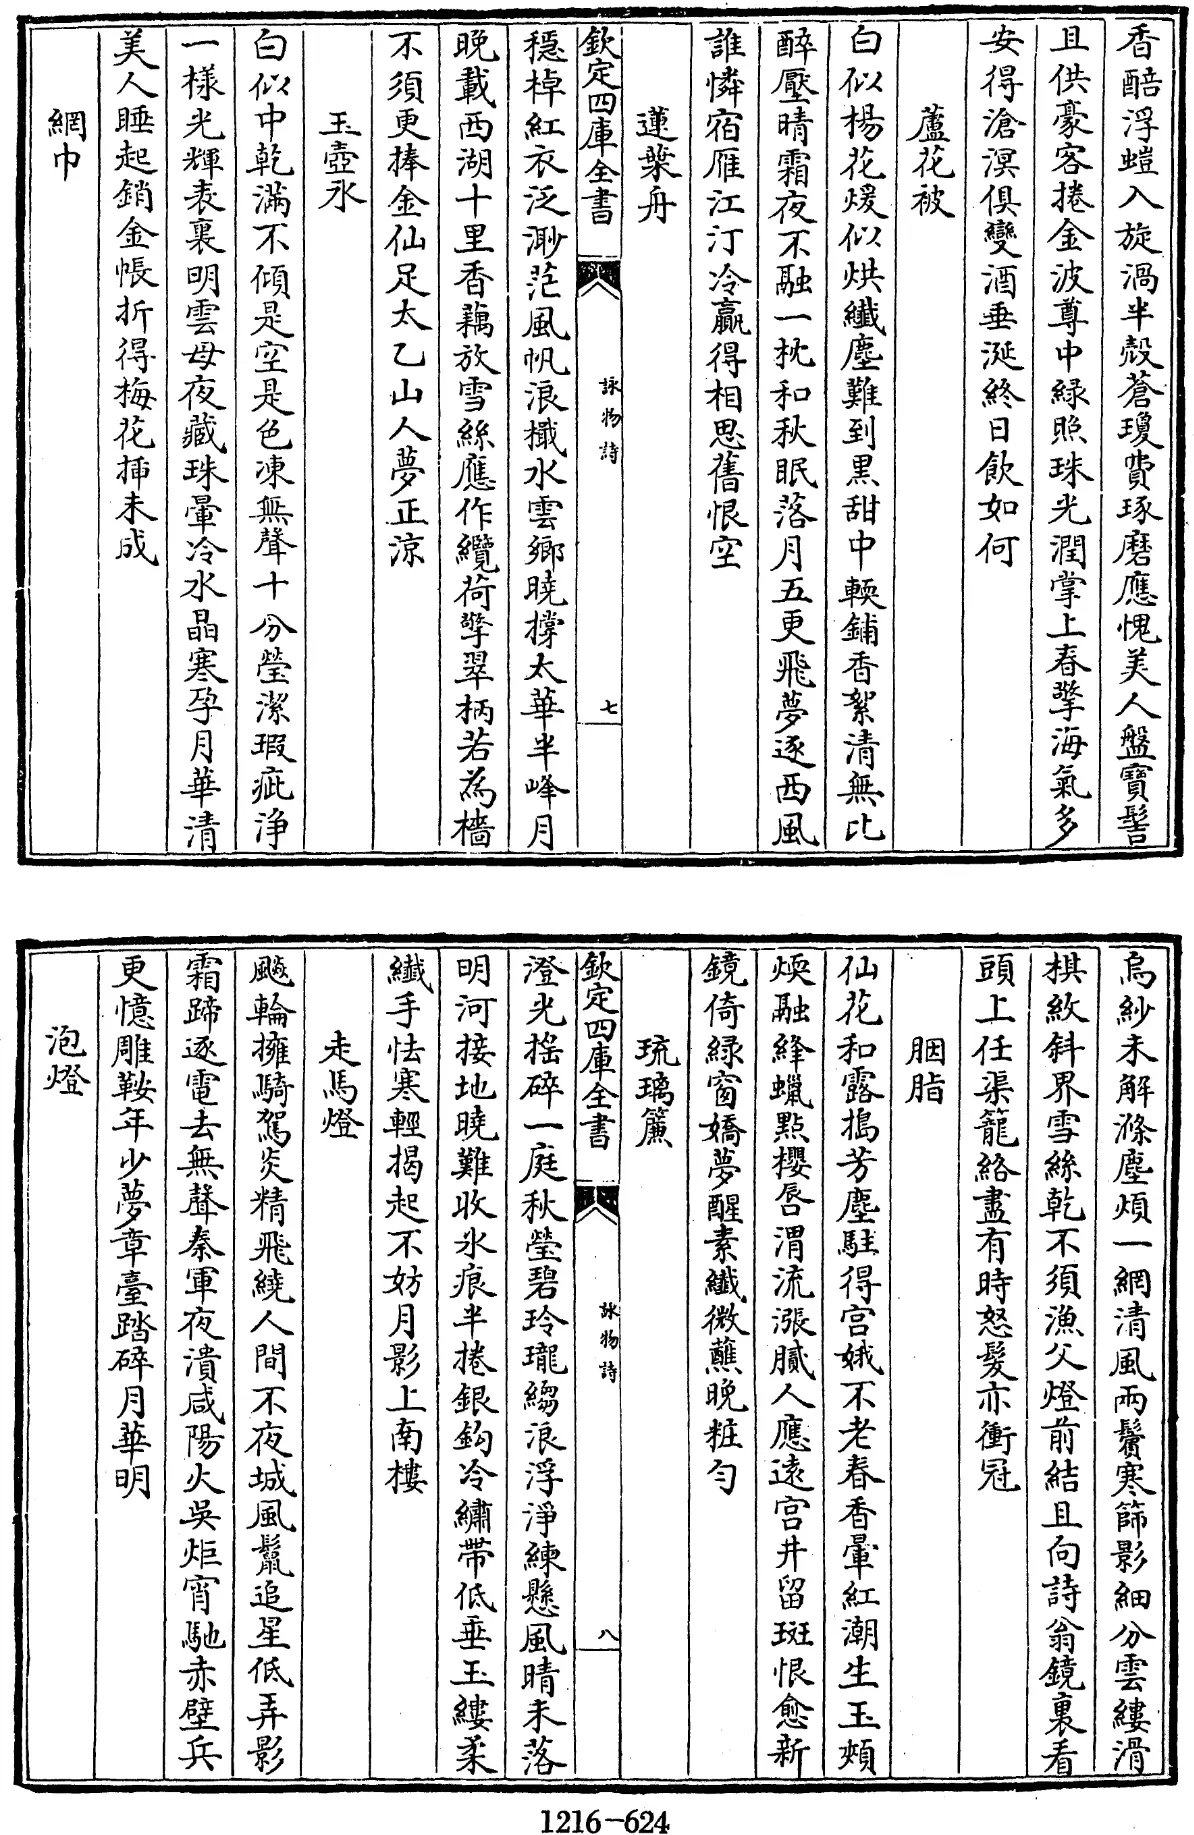 香醅浮螘入旋渦半殼蒼瓊費琢磨應愧美人盤寶髻
且供豪客捲金波尊中緑照珠光潤掌上春擎海氣多
安得滄溟俱變酒垂涎終日飲如何
蘆花被
白似楊花煖似烘纖塵難到黒甜中輭鋪香絮清無比
醉壓晴霜夜不融一枕和秋眠落月五更飛夢逐西風
誰憐宿雁江汀冷贏得相思舊恨空
蓮葉舟
欽定四庫全書
詠物詩
七
穩棹紅衣泛渺茫風帆浪檝水雲鄉曉撐太華半峰月
晚載西湖十里香藕放雪絲應作纜荷擎翠柄若為檣
不須更捧金仙足太乙山人夢正涼
玉壺氷
白似中乾滿不傾是空是色凍無聲十分瑩潔瑕疵浄
一樣光輝表裏明雲母夜藏珠暈冷水晶寒孕月華清
美人睡起銷金帳折得梅花揷未成
網巾
烏紗未解滌塵煩一網清風兩鬢寒篩影細分雲縷滑
棋紋斜界雪絲乾不須漁父燈前結且向詩翁鏡裏看
頭上任渠籠絡盡有時怒髮亦衝冠
胭脂
仙花和露搗芳塵駐得宫娥不老春香暈紅潮生玉頰
煖融絳蠟點櫻唇渭流漲膩人應遠宫井留斑恨愈新
鏡倚緑窗嬌夢醒素纖微蘸晚粧匀
琉璃簾
欽定四庫全書
詠物詩
八
澄光搖碎一庭秋瑩碧玲瓏縐浪浮淨練懸風晴未落
明河接地曉難收氷痕半捲銀鈎冷繡帶低垂玉縷柔
纖手怯寒輕揭起不妨月影上南樓
走馬燈
飈輪擁騎駕炎精飛繞人間不夜城風鬣追星低弄影
霜蹄逐電去無聲秦軍夜潰咸陽火吳炬宵馳赤壁兵
更憶雕鞍年少夢章臺踏碎月華明
泡燈
1216-624